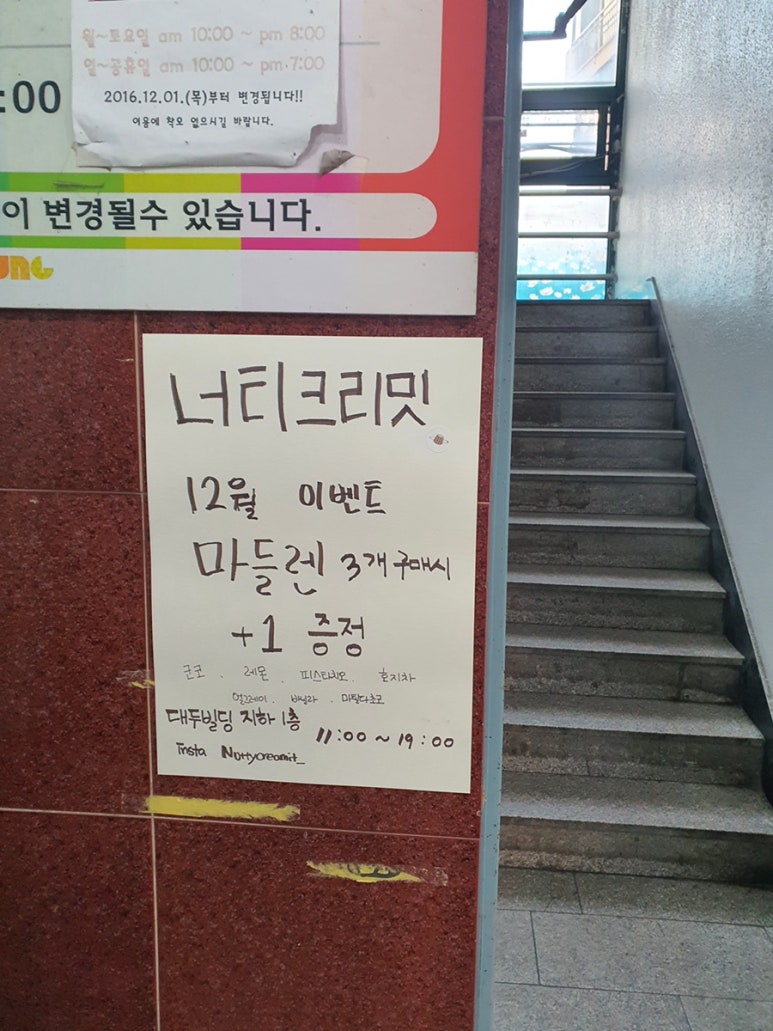 월~토요일 am 10:00 ~ pm 8:00
일~공휴일 am 10:00 ~ pm.7:00
:00
2016.12.01.(목)부터 변경됩니다!!
이용에 착오 없으시길 바랍니다.
이 변경될수 있습니다.
너티크리밋
12월 이벤트
마들렌 3개 구매시
+1 증정
군고 . 레몬 . 피스타치오 . 호지차
얼그레이 . 바닐라 . 마틸다초코
대두빌딩 지하 1층
11:00 ~ 19:00
insta Nuttycreamit_